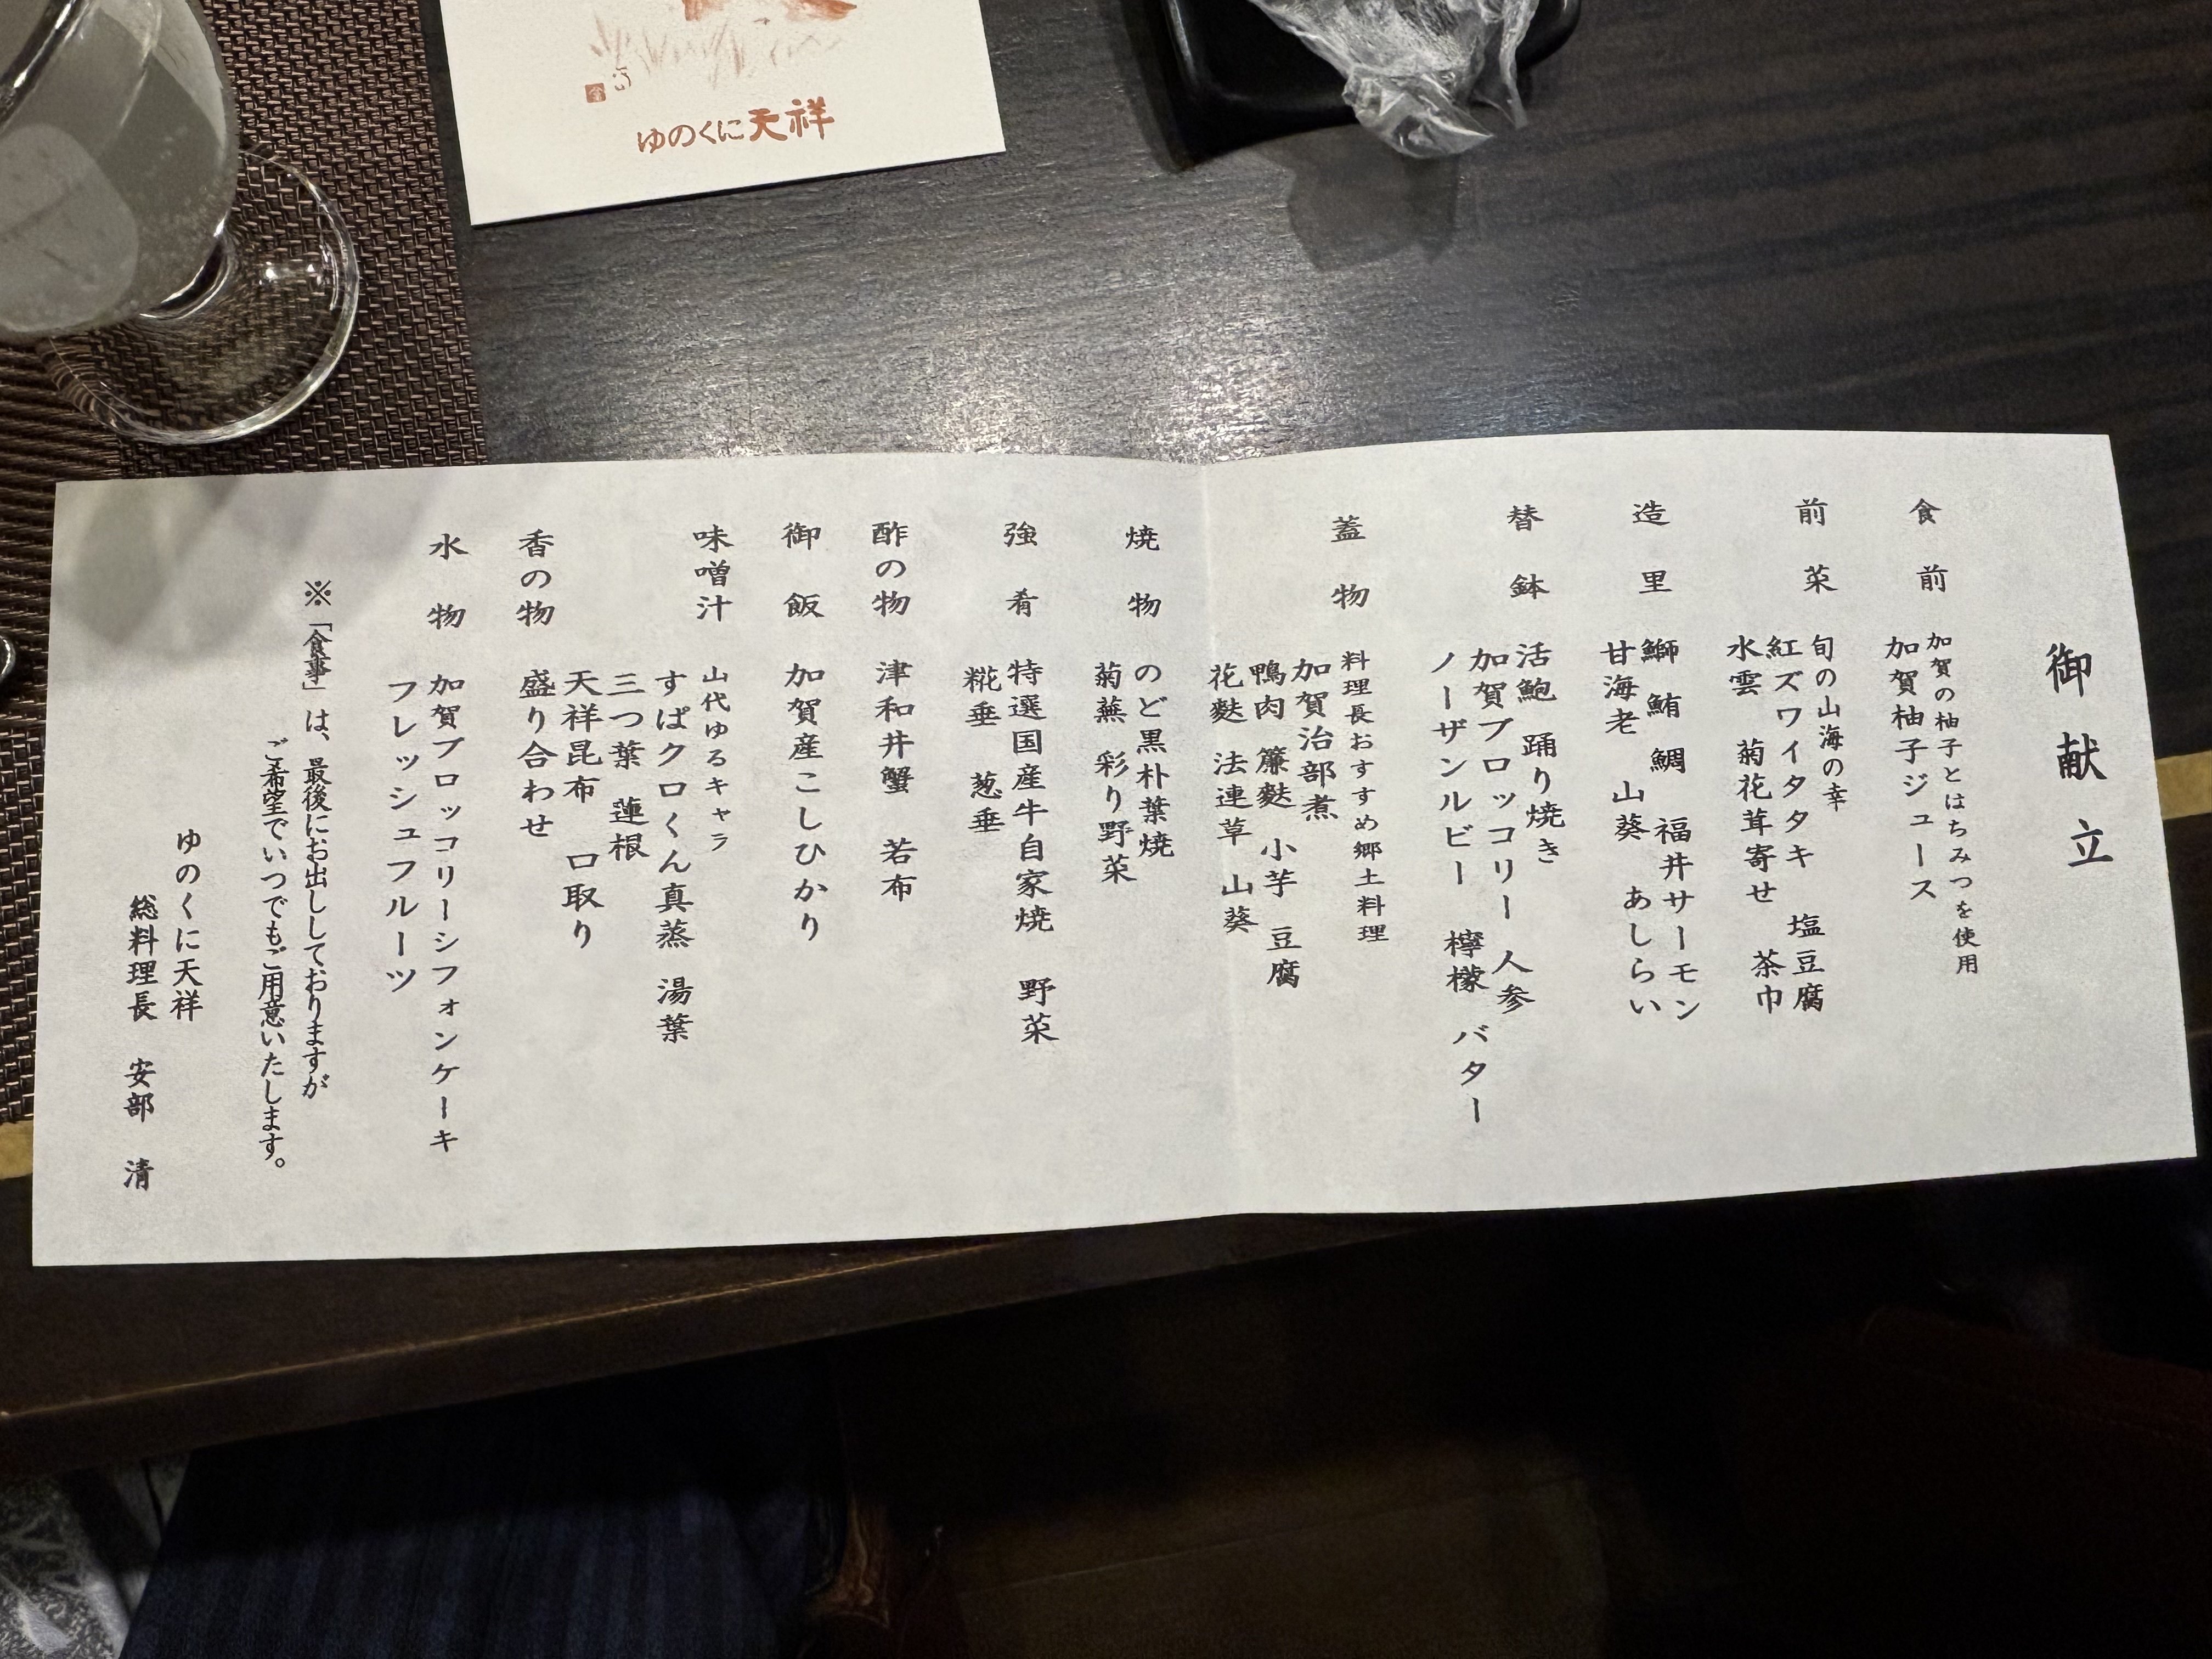 ゆのくに天祥
御献立
食前
加賀の柚子とはちみつを使用
加賀柚子ジュース
前菜
旬の山海の幸
紅ズワイタタキ 塩豆腐
水雲 菊花茸寄せ 茶巾
造里
鰤 鮪 鯛 福井サーモン
甘海老 山葵 あしらい
替鉢
活鮑 踊り焼き
加賀ブロッコリー 人参
ノーザンルビー 檸檬 バター
蓋物
料理長おすすめ郷土料理
加賀治部煮
鴨肉 簾麩 小芋 豆腐
花麩 法連草 山葵
焼物
のど黒朴葉焼
菊蕪 彩り野菜
強肴
特選国産牛自家焼 野菜
糀垂 葱垂
酢の物
津和井蟹 若布
御飯
加賀産こしひかり
味噌汁
山代ゆるキャラ
すぱクロくん真蒸 湯葉
三つ葉 蓮根
香の物
天祥昆布 口取り
盛り合わせ
水物
加賀ブロッコリーシフォンケーキ
フレッシュフルーツ
※「食事」は、最後にお出ししておりますが
ご希望でいつでもご用意いたします。
ゆのくに天祥
総料理長 安部 清